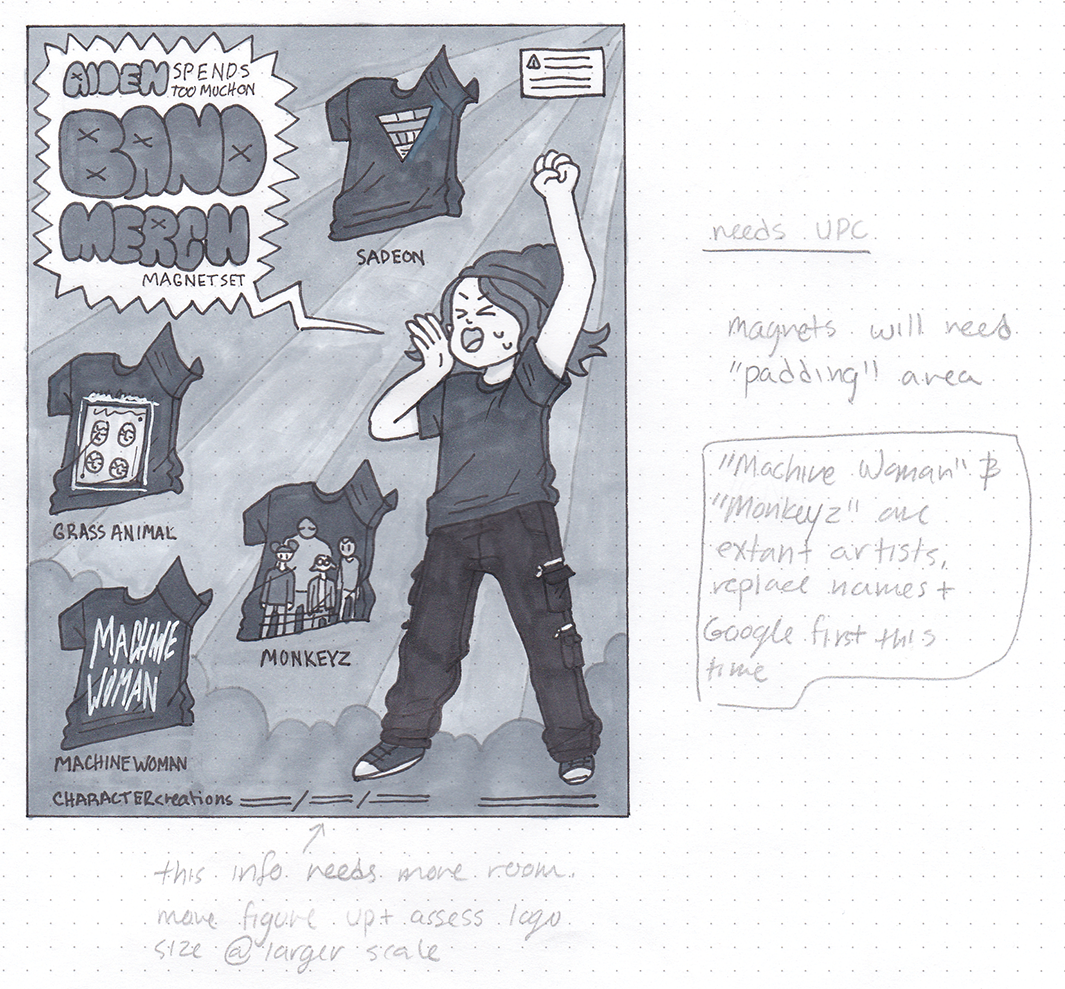 AIDEN SPENDS
TOO MUCH ON
BAND
MERCH
MAGNET SET
SADEON
GRASS ANIMAL
MONKEYZ
MACHINE
WOMAN
MACHINE WOMAN
CHARACTERcreations
needs UPC
magnets will need
"padding" area
"Machine Woman" &
"Monkeyz" are
extant artists,
replace names +
Google first this
time
this info needs more room.
move figure up + assess logo
size @ larger scale